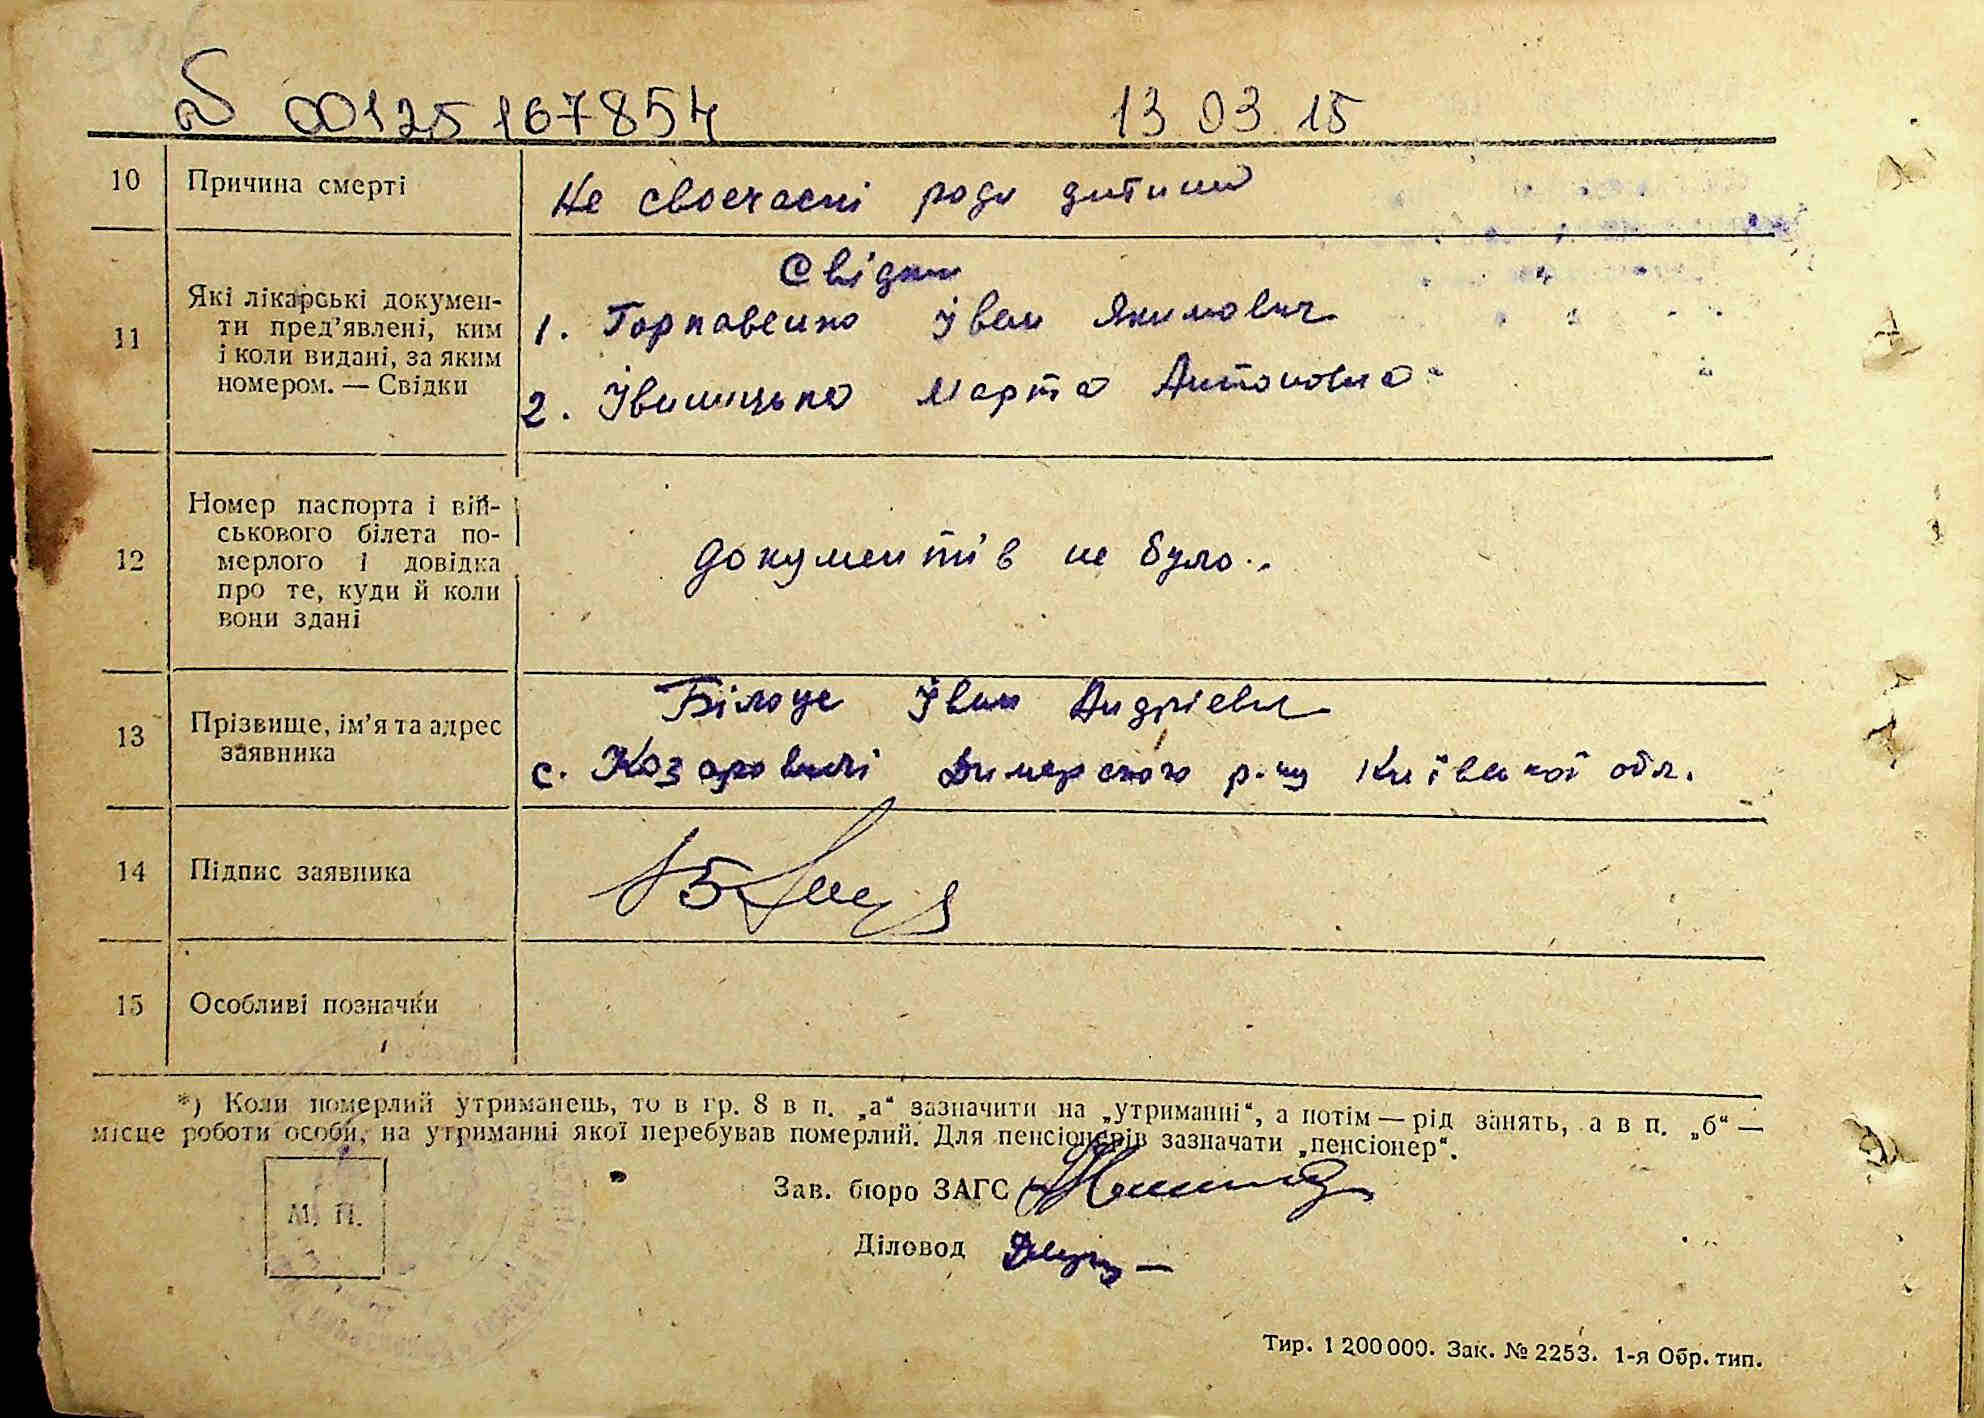 00125167854 13.03.15
10 Причина смерті Не своєчасні роди дитини
Свідки
11 Які лікарські докумен-
ти пред’явлені, ким
і коли видані, за яким
номером. — Свідки
1. Горпавенко Іван Якимович
2. Марта Антоновна
12 Номер паспорта і вій-
ськового білета по-
мерлого і довідка
про те, куди й коли
вони здані
документів не було.
13 Прізвище, ім’я та адрес
заявника
Білоце Іван Андрієвич
с. Козаровичі Димерского р-ну Київської обл.
14 Підпис заявника
15 Особливі позначки
*) Коли померлий утриманець, то в гр. 8 в п. „а“ зазначити на „утриманні“, а потім — рід занять, а в п. „б“ —
місце роботи особи, на утриманні якої перебував померлий. Для пенсіонерів зазначати „пенсіонер“.
М. П.
Зав. бюро ЗАГС
Діловод
Тир. 1 200 000. Зак. № 2253. 1-я Обр. тип.